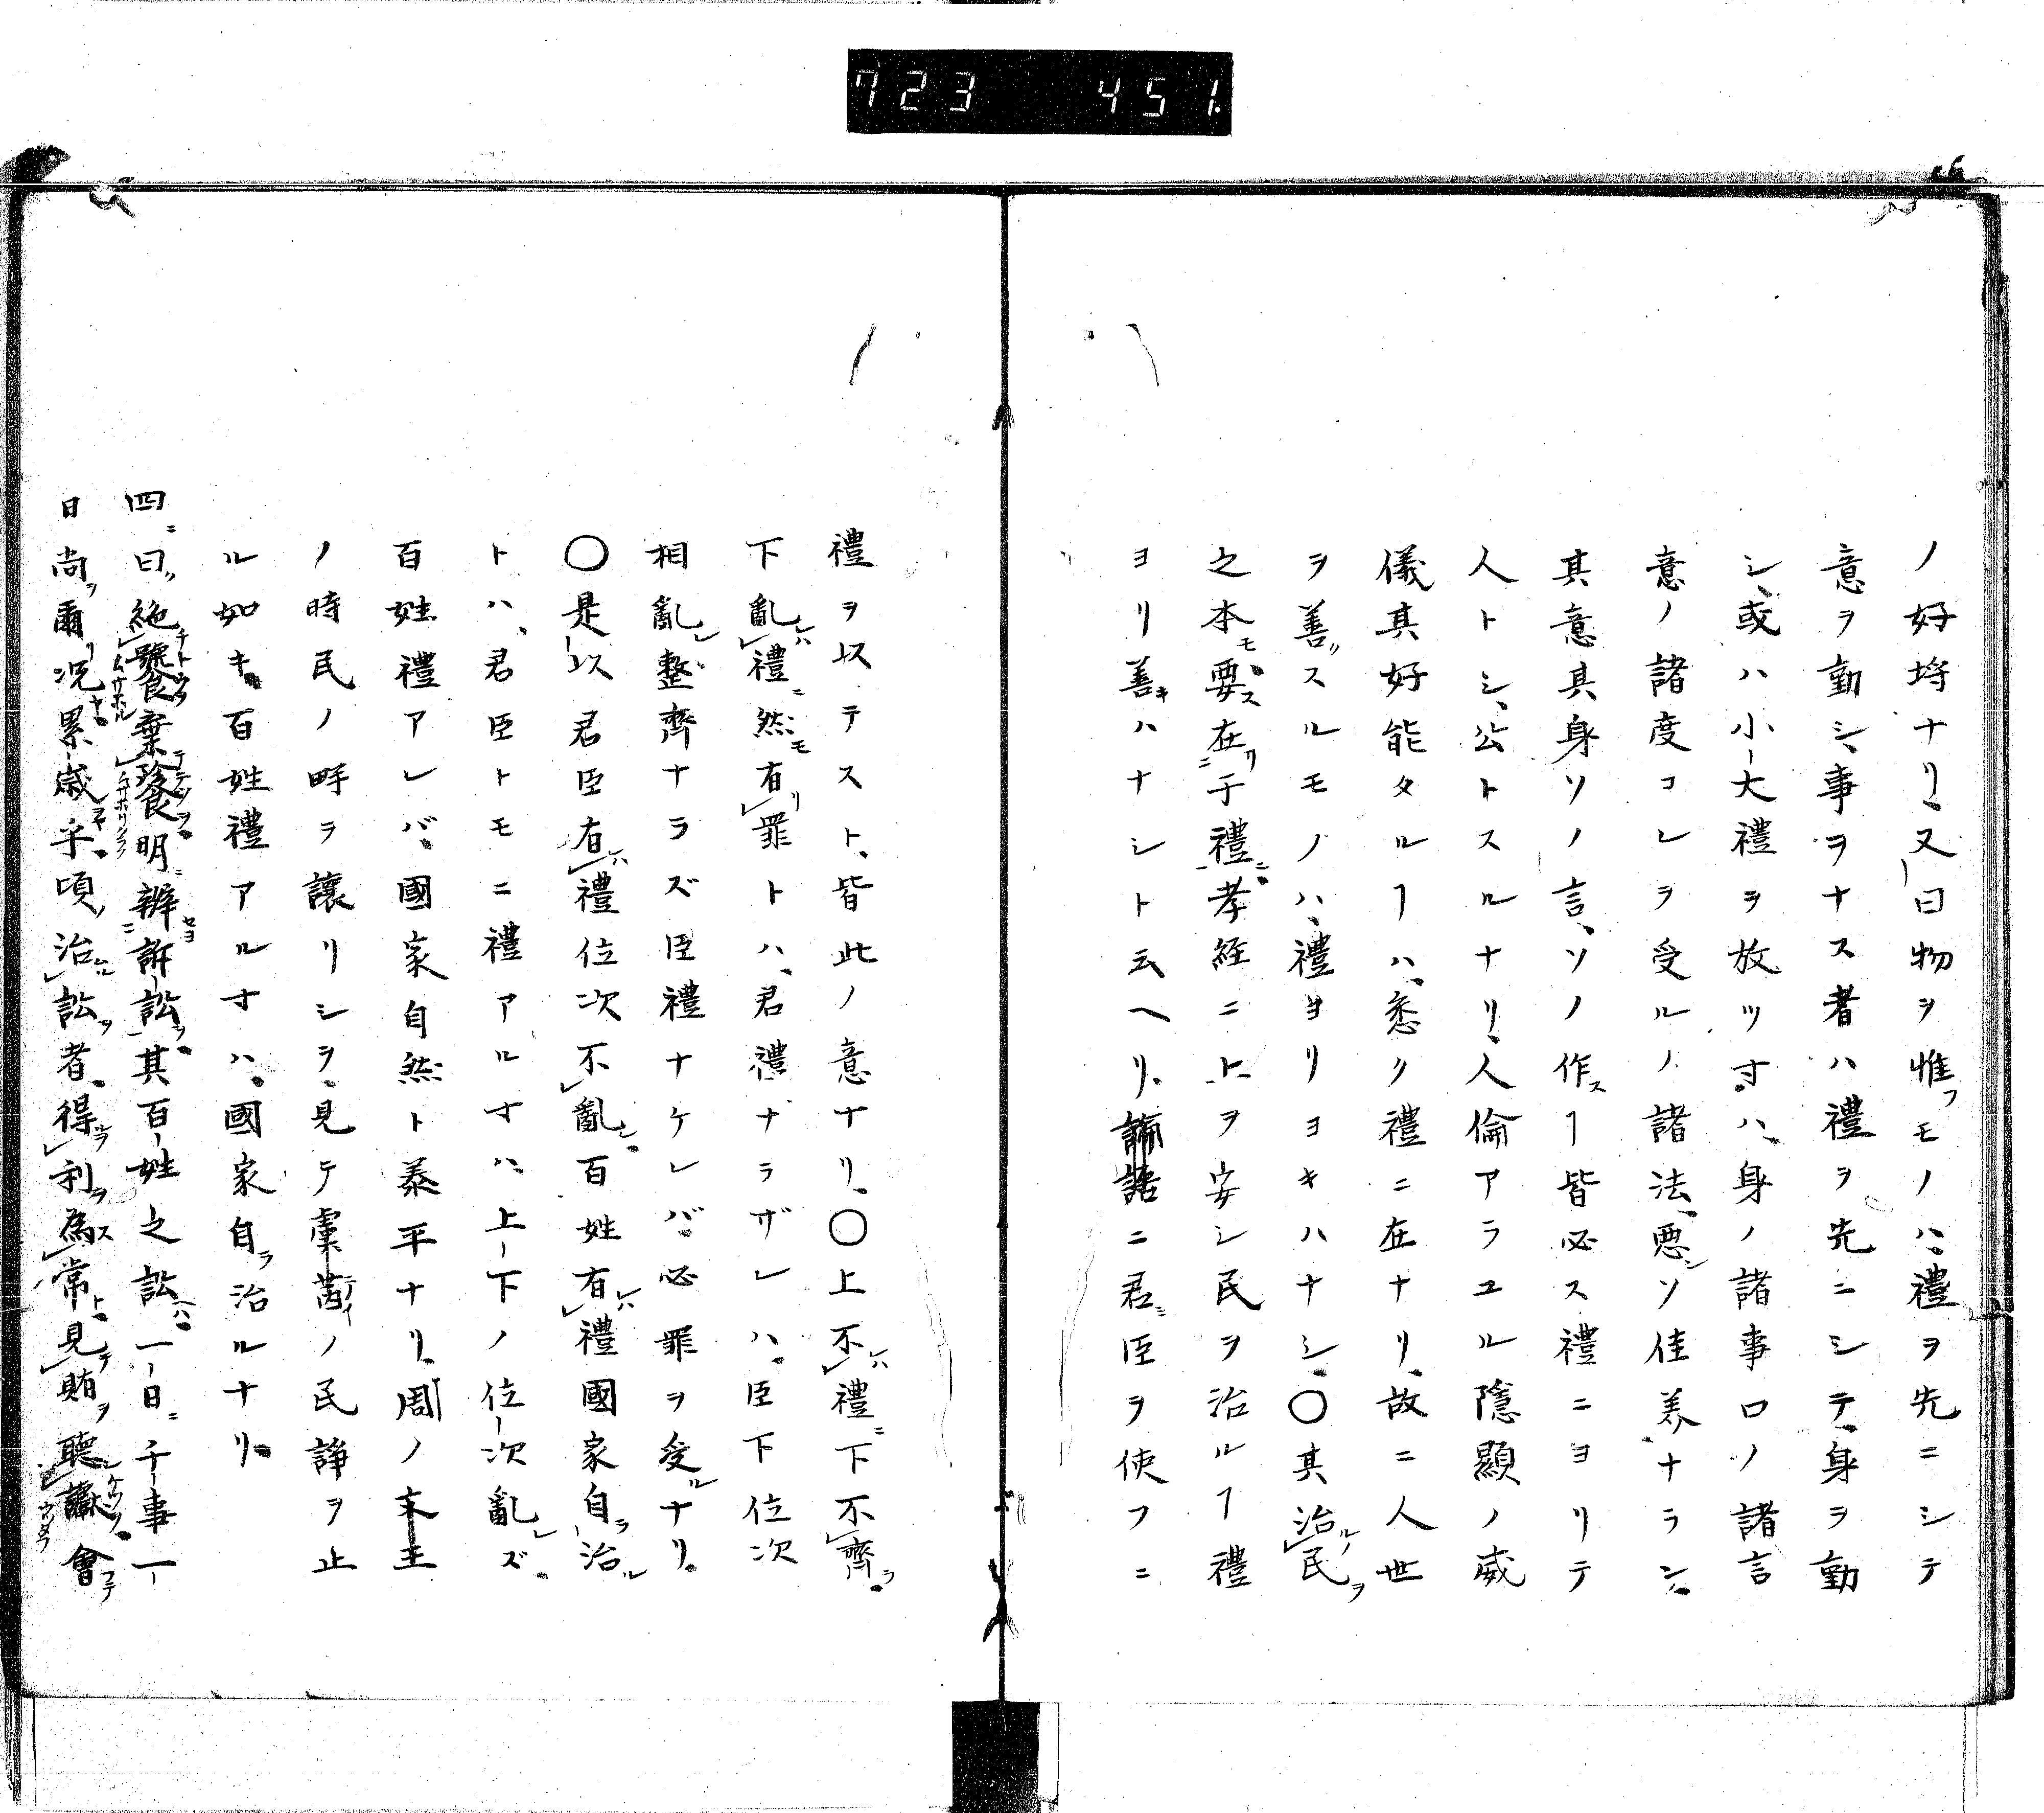 723 451.
ノ好埒ナリ、又曰物ヲ惟フモノハ、禮ヲ先ニシテ
意ヲ動シ、事ヲナス者ハ禮ヲ先ニシテ、身ヲ動
シ、或ハ小大禮ヲ放ツ寸ハ、身ノ諸事口ノ諸言
意ノ諸度コレヲ受ルノ諸法、悪シソ佳美ナラン、
其意其身ソノ言、ソノ作スヿ皆必ス禮ニヨリテ
人トシ、公トスルナリ、人倫アラユル隱顯ノ威
儀其好能タルヿハ、悉ク禮ニ在ナリ、故ニ人世
ヲ善スルモノハ、禮ヨリヨキハナシ、〇其治民
之本要在于禮、孝経ニ上ヲ安シ民ヲ治ルヿ禮
ヨリ善キハナシト云ヘリ、論語ニ君臣ヲ使フニ
禮ヲ以テスト、皆此ノ意ナリ、〇上不禮下不齊
下亂禮然有罪トハ、君禮ナラザレハ、臣下位次
相亂レ整齊ナラズ臣禮ナケレバ、必罪ヲ受ルナリ、
〇是以君臣有禮位次不亂百姓有禮國家自治
トハ、君臣トモニ禮アル寸ハ、上下ノ位次亂レズ、
百姓禮アレバ、國家自然ト泰平ナリ、周ノ末王
ノ時民ノ畔ヲ讓リシヲ、見テ虞芮ノ民諍ヲ止
ル如キ、百姓禮アル寸ハ、國家自ラ治ルナリ、
四曰絶饕棄餮明辨訴訟、其百姓之訟一日千事一
日尚爾況累歳乎、頃治訟者、得利為常見賄聽讞會